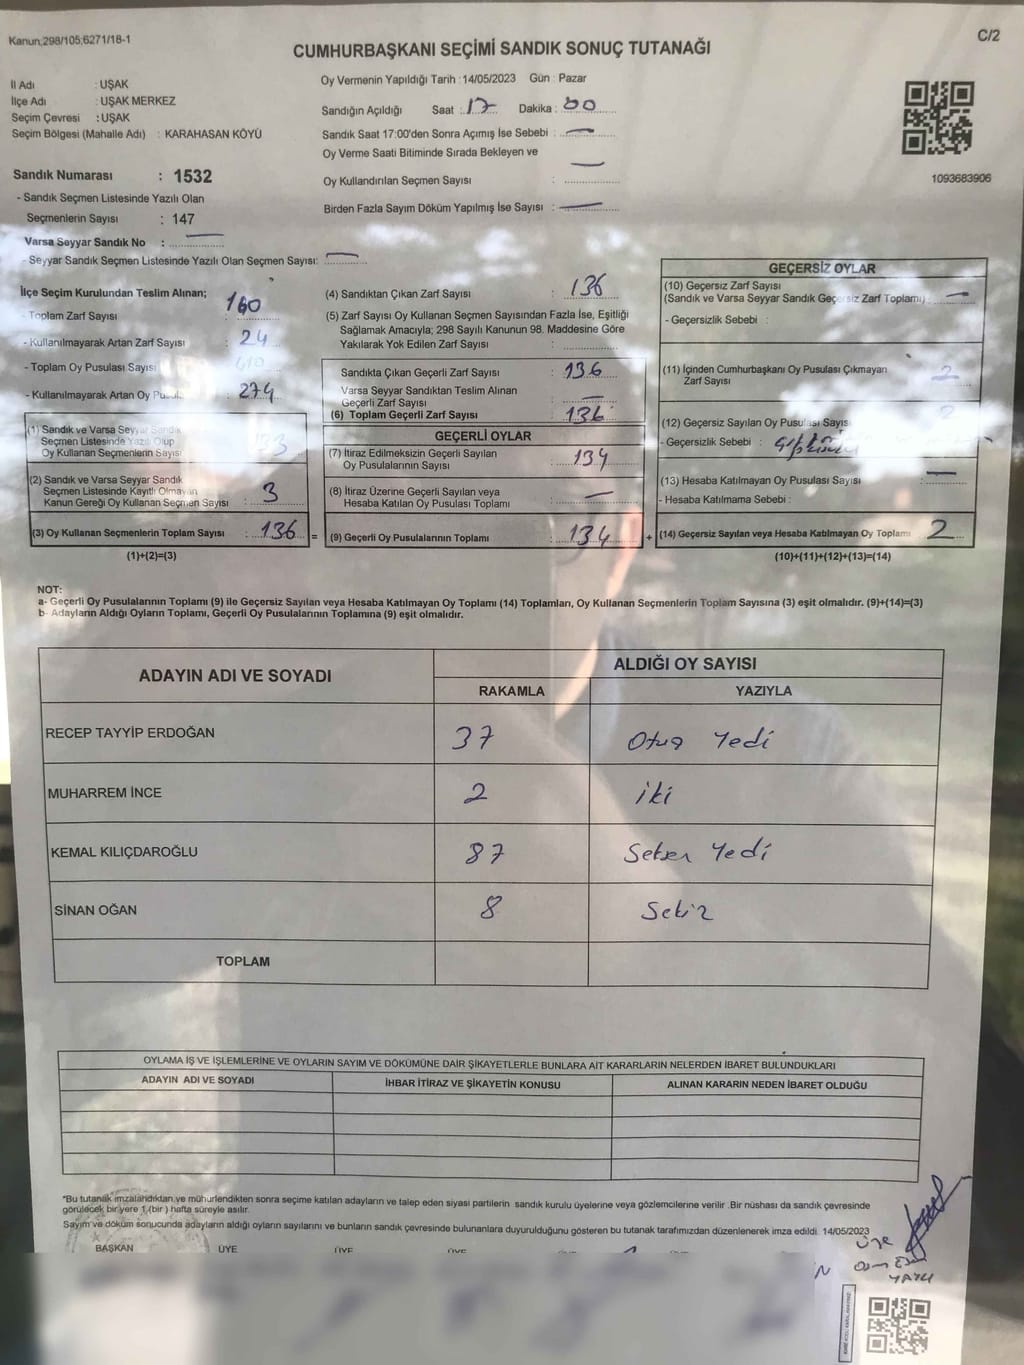 Kanun;298/105;6271/18-1
C/2
CUMHURBAŞKANI SEÇİMİ SANDIK SONUÇ TUTANAĞI
İl Adı : UŞAK
İlçe Adı : UŞAK MERKEZ
Seçim Çevresi : UŞAK
Seçim Bölgesi (Mahalle Adı) : KARAHASAN KÖYÜ
Sandık Numarası : 1532
- Sandık Seçmen Listesinde Yazılı Olan
Seçmenlerin Sayısı : 147
Varsa Seyyar Sandık No :
- Seyyar Sandık Seçmen Listesinde Yazılı Olan Seçmen Sayısı:
Oy Vermenin Yapıldığı Tarih :14/05/2023 Gün : Pazar
Sandığın Açıldığı Saat : 17 Dakika : 00
Sandık Saat 17:00'den Sonra Açımış İse Sebebi :
Oy Verme Saati Bitiminde Sırada Bekleyen ve
Oy Kullandırılan Seçmen Sayısı :
Birden Fazla Sayım Döküm Yapılmış İse Sayısı :
1093683906
İlçe Seçim Kurulundan Teslim Alınan;
- Toplam Zarf Sayısı : 160
- Kullanılmayarak Artan Zarf Sayısı : 24
- Toplam Oy Pusulası Sayısı : 410
- Kullanılmayarak Artan Oy Pusula : 274
(1) Sandık ve Varsa Seyyar Sandık
Seçmen Listesinde Yazılı Olup
Oy Kullanan Seçmenlerin Sayısı : 133
(2) Sandık ve Varsa Seyyar Sandık
Seçmen Listesinde Kayıtlı Olmayan
Kanun Gereği Oy Kullanan Seçmen Sayısı : 3
(3) Oy Kullanan Seçmenlerin Toplam Sayısı : 136 =
(1)+(2)=(3)
(4) Sandıktan Çıkan Zarf Sayısı : 136
(5) Zarf Sayısı Oy Kullanan Seçmen Sayısından Fazla İse, Eşitliği
Sağlamak Amacıyla; 298 Sayılı Kanunun 98. Maddesine Göre
Yakılarak Yok Edilen Zarf Sayısı :
Sandıkta Çıkan Geçerli Zarf Sayısı : 136
Varsa Seyyar Sandıktan Teslim Alınan
Geçerli Zarf Sayısı :
(6) Toplam Geçerli Zarf Sayısı : 136
GEÇERLİ OYLAR
(7) İtiraz Edilmeksizin Geçerli Sayılan
Oy Pusulalarının Sayısı : 134
(8) İtiraz Üzerine Geçerli Sayılan veya
Hesaba Katılan Oy Pusulası Toplamı :
(9) Geçerli Oy Pusulalarının Toplamı : 134 +
GEÇERSİZ OYLAR
(10) Geçersiz Zarf Sayısı
(Sandık ve Varsa Seyyar Sandık Geçersiz Zarf Toplamı) :
- Geçersizlik Sebebi :
(11) İçinden Cumhurbaşkanı Oy Pusulası Çıkmayan
Zarf Sayısı
(12) Geçersiz Sayılan Oy Pusulası Sayısı : 2
- Geçersizlik Sebebi :
(13) Hesaba Katılmayan Oy Pusulası Sayısı :
- Hesaba Katılmama Sebebi :
(14) Geçersiz Sayılan veya Hesaba Katılmayan Oy Toplamı 2
(10)+(11)+(12)+(13)=(14)
NOT:
a- Geçerli Oy Pusulalarının Toplamı (9) ile Geçersiz Sayılan veya Hesaba Katılmayan Oy Toplamı (14) Toplamları, Oy Kullanan Seçmenlerin Toplam Sayısına (3) eşit olmalıdır. (9)+(14)=(3)
b- Adayların Aldığı Oyların Toplamı, Geçerli Oy Pusulalarının Toplamına (9) eşit olmalıdır.
ADAYIN ADI VE SOYADI
ALDIĞI OY SAYISI
RAKAMLA YAZIYLA
RECEP TAYYİP ERDOĞAN 37 Otuz Yedi
MUHARREM İNCE 2 iki
KEMAL KILIÇDAROĞLU 87 Seksen Yedi
SİNAN OĞAN 8 Sekiz
TOPLAM
OYLAMA İŞ VE İŞLEMLERİNE VE OYLARIN SAYIM VE DÖKÜMÜNE DAİR ŞİKAYETLERLE BUNLARA AİT KARARLARIN NELERDEN İBARET BULUNDUKLARI
ADAYIN ADI VE SOYADI İHBAR İTİRAZ VE ŞİKAYETİN KONUSU ALINAN KARARIN NEDEN İBARET OLDUĞU
*Bu tutanak imzalandıktan ve mühürlendikten sonra seçime katılan adayların ve talep eden siyasi partilerin sandık kurulu üyelerine veya gözlemcilerine verilir. Bir nüshası da sandık çevresinde
görülecek bir yere 1 (bir) hafta süreyle asılır.
Sayım ve döküm sonucunda adayların aldığı oyların sayılarını ve bunların sandık çevresinde bulunanlara duyurulduğunu gösteren bu tutanak tarafımızdan düzenlenerek imza edildi. 14/05/2023
BAŞKAN ÜYE ÜYE ÜYE
Üye